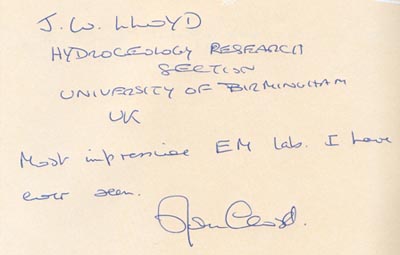 J. W. LLOYD
HYDROGEOLOGY RESEARCH
SECTION
UNIVERSITY OF BIRMINGHAM
UK
Most impressive EM lab. I have
ever seen.